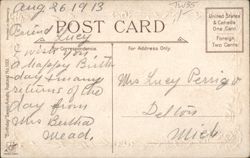 Aug 26 1913
POST CARD
United States
& Canada
One Cent
Foreign
Two Cents
For Correspondence
For Address Only
Friend Lucy
I wish you
a happy Birth
day & many
returns of the
day from
Mrs Bertha
Mead.
Mrs Lucy Perrigo
Delton
Mich